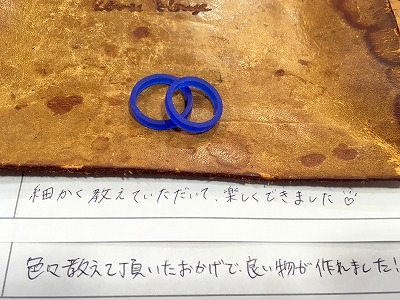 細かく教えていただいて、楽しくできました
色々教えて頂いたおかげで、良い物が作れました!